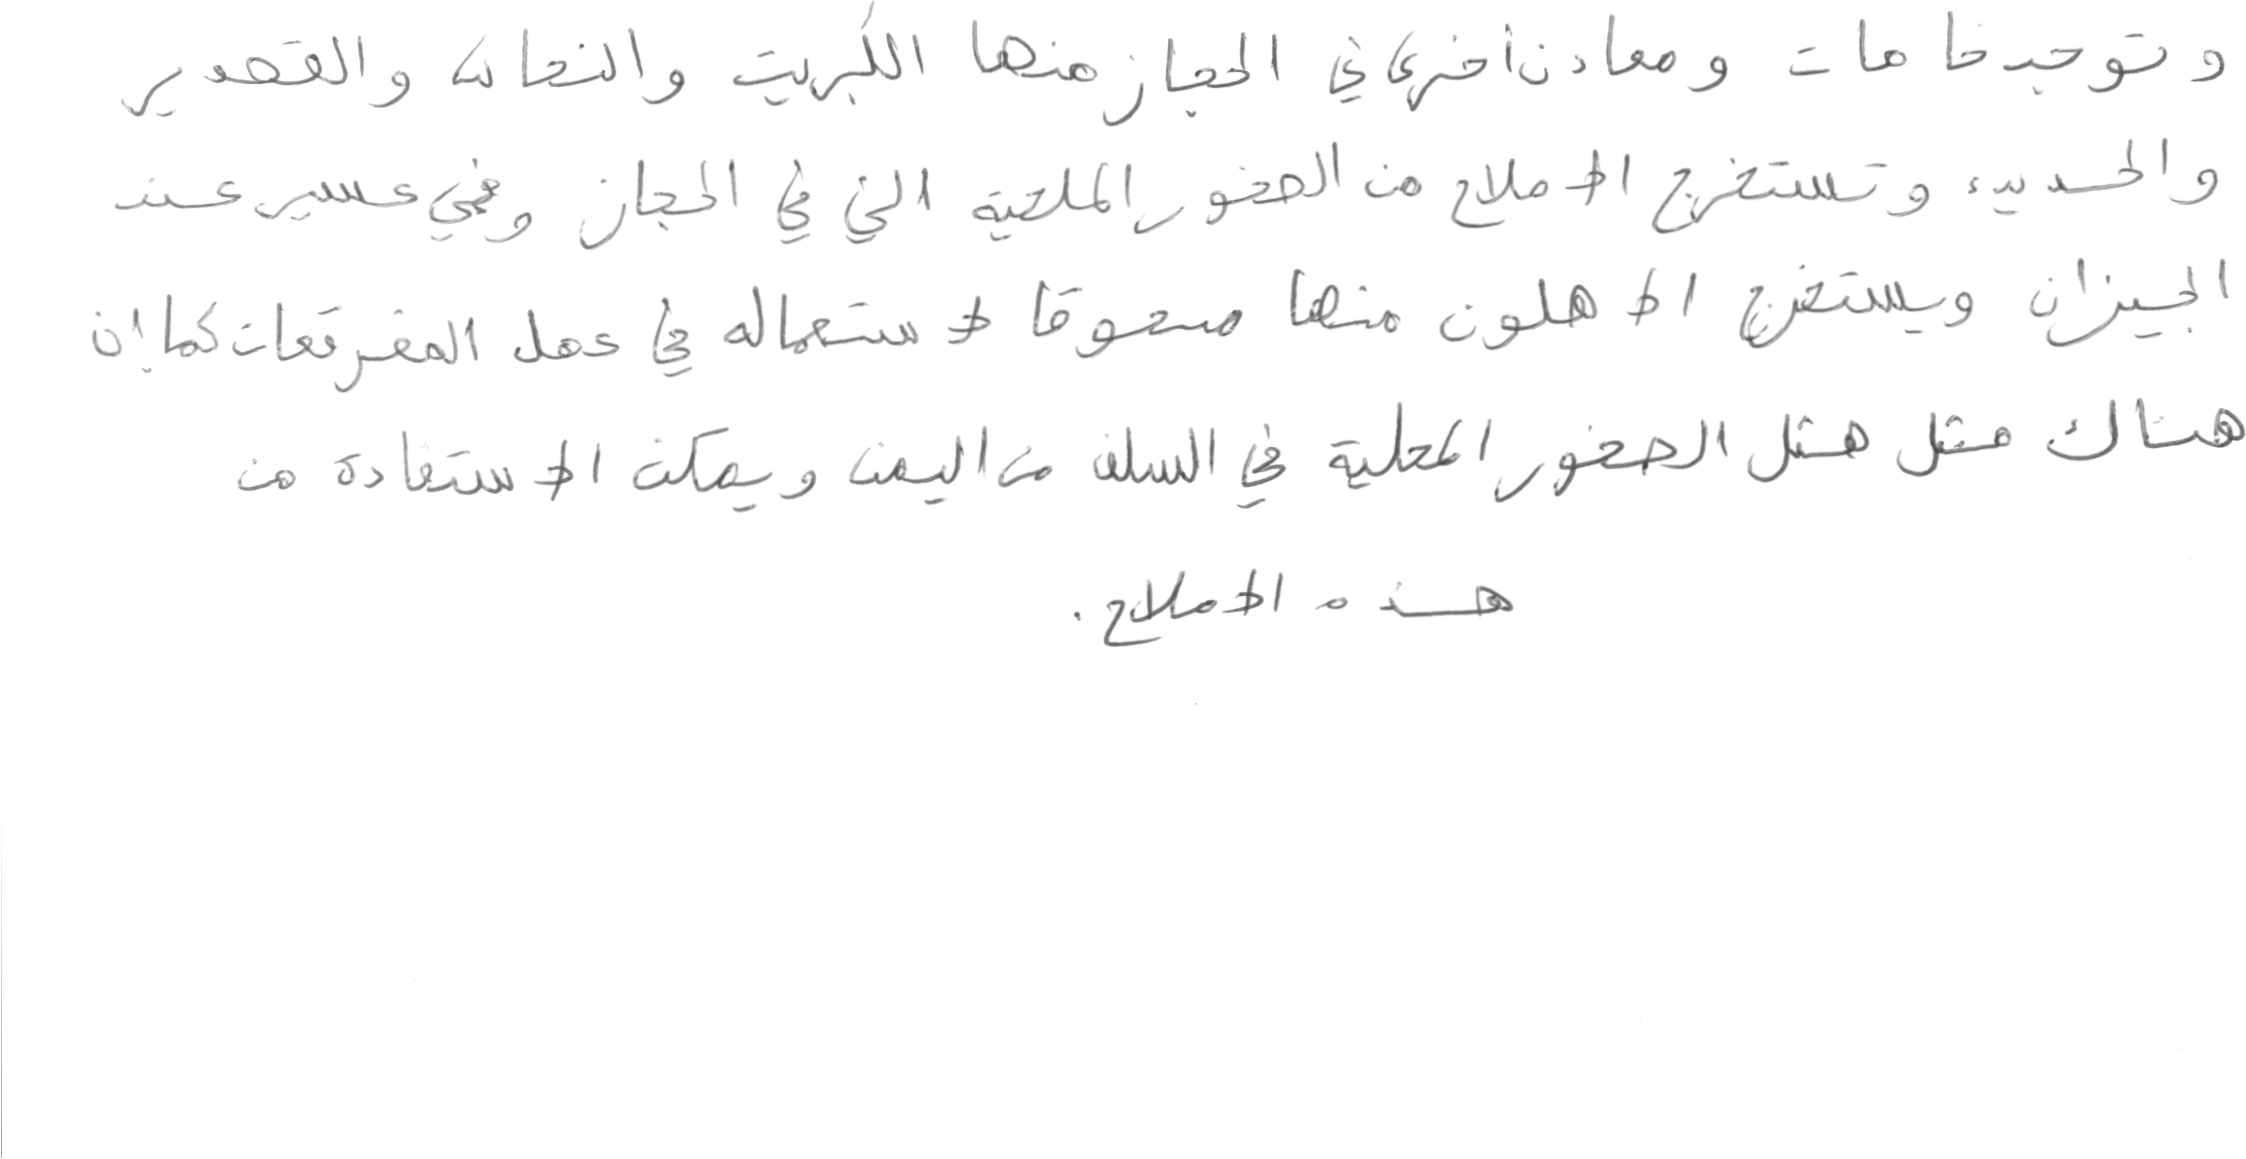 وتوجد خامات ومعادن أخرى في الحجاز منها الكبريت والنحاس والقصدير
والحديد وتستخرج الاملاح من الصخور الملحية التي في الحجاز وفي عسير عند
الجيزان ويستخرج الاهلون منها مسحوقا لاستعماله في عمل المفرقعات كما إن
هناك مثل هثل الصخور المحلية في السلف من اليمن ويمكن الاستفادة من
هذه الاملاح.